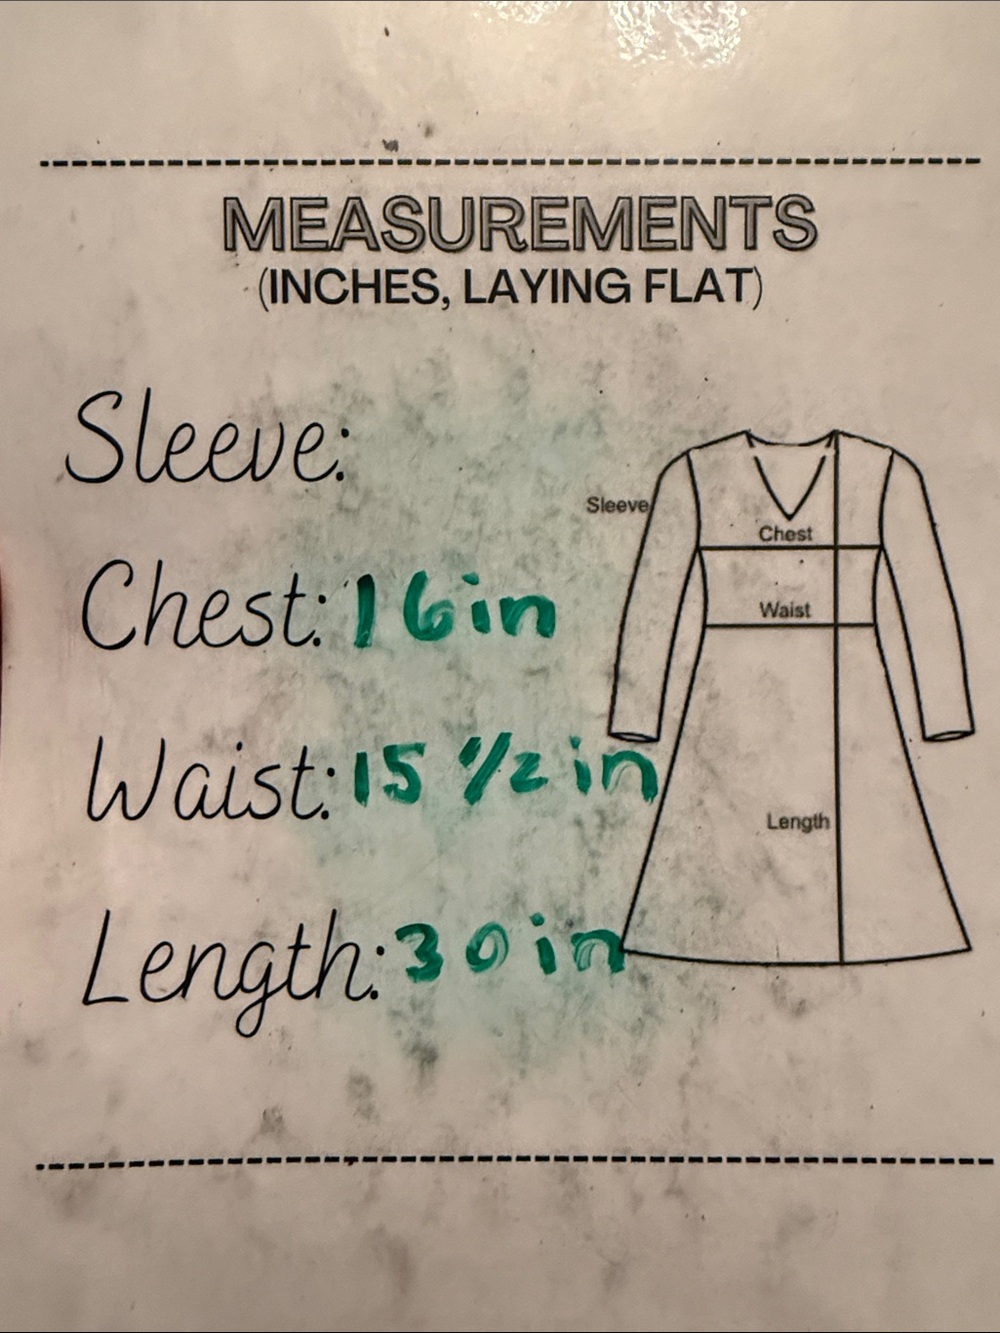 MEASUREMENTS
(INCHES, LAYING FLAT)
Sleeve:
Chest: 16in
Waist: 15 1/2 in
Length: 30 in
Sleeve
Chest
Waist
Length